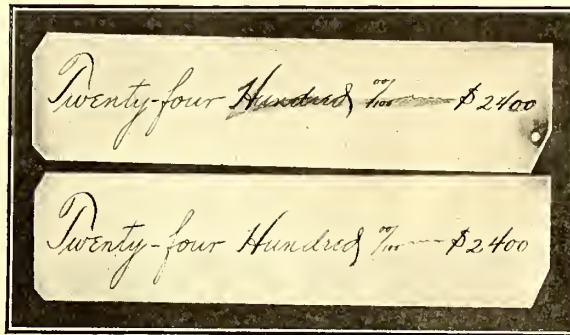 Twenty-four Hundred 00/100 $2400
Twenty-four Hundred 00/100 $2400